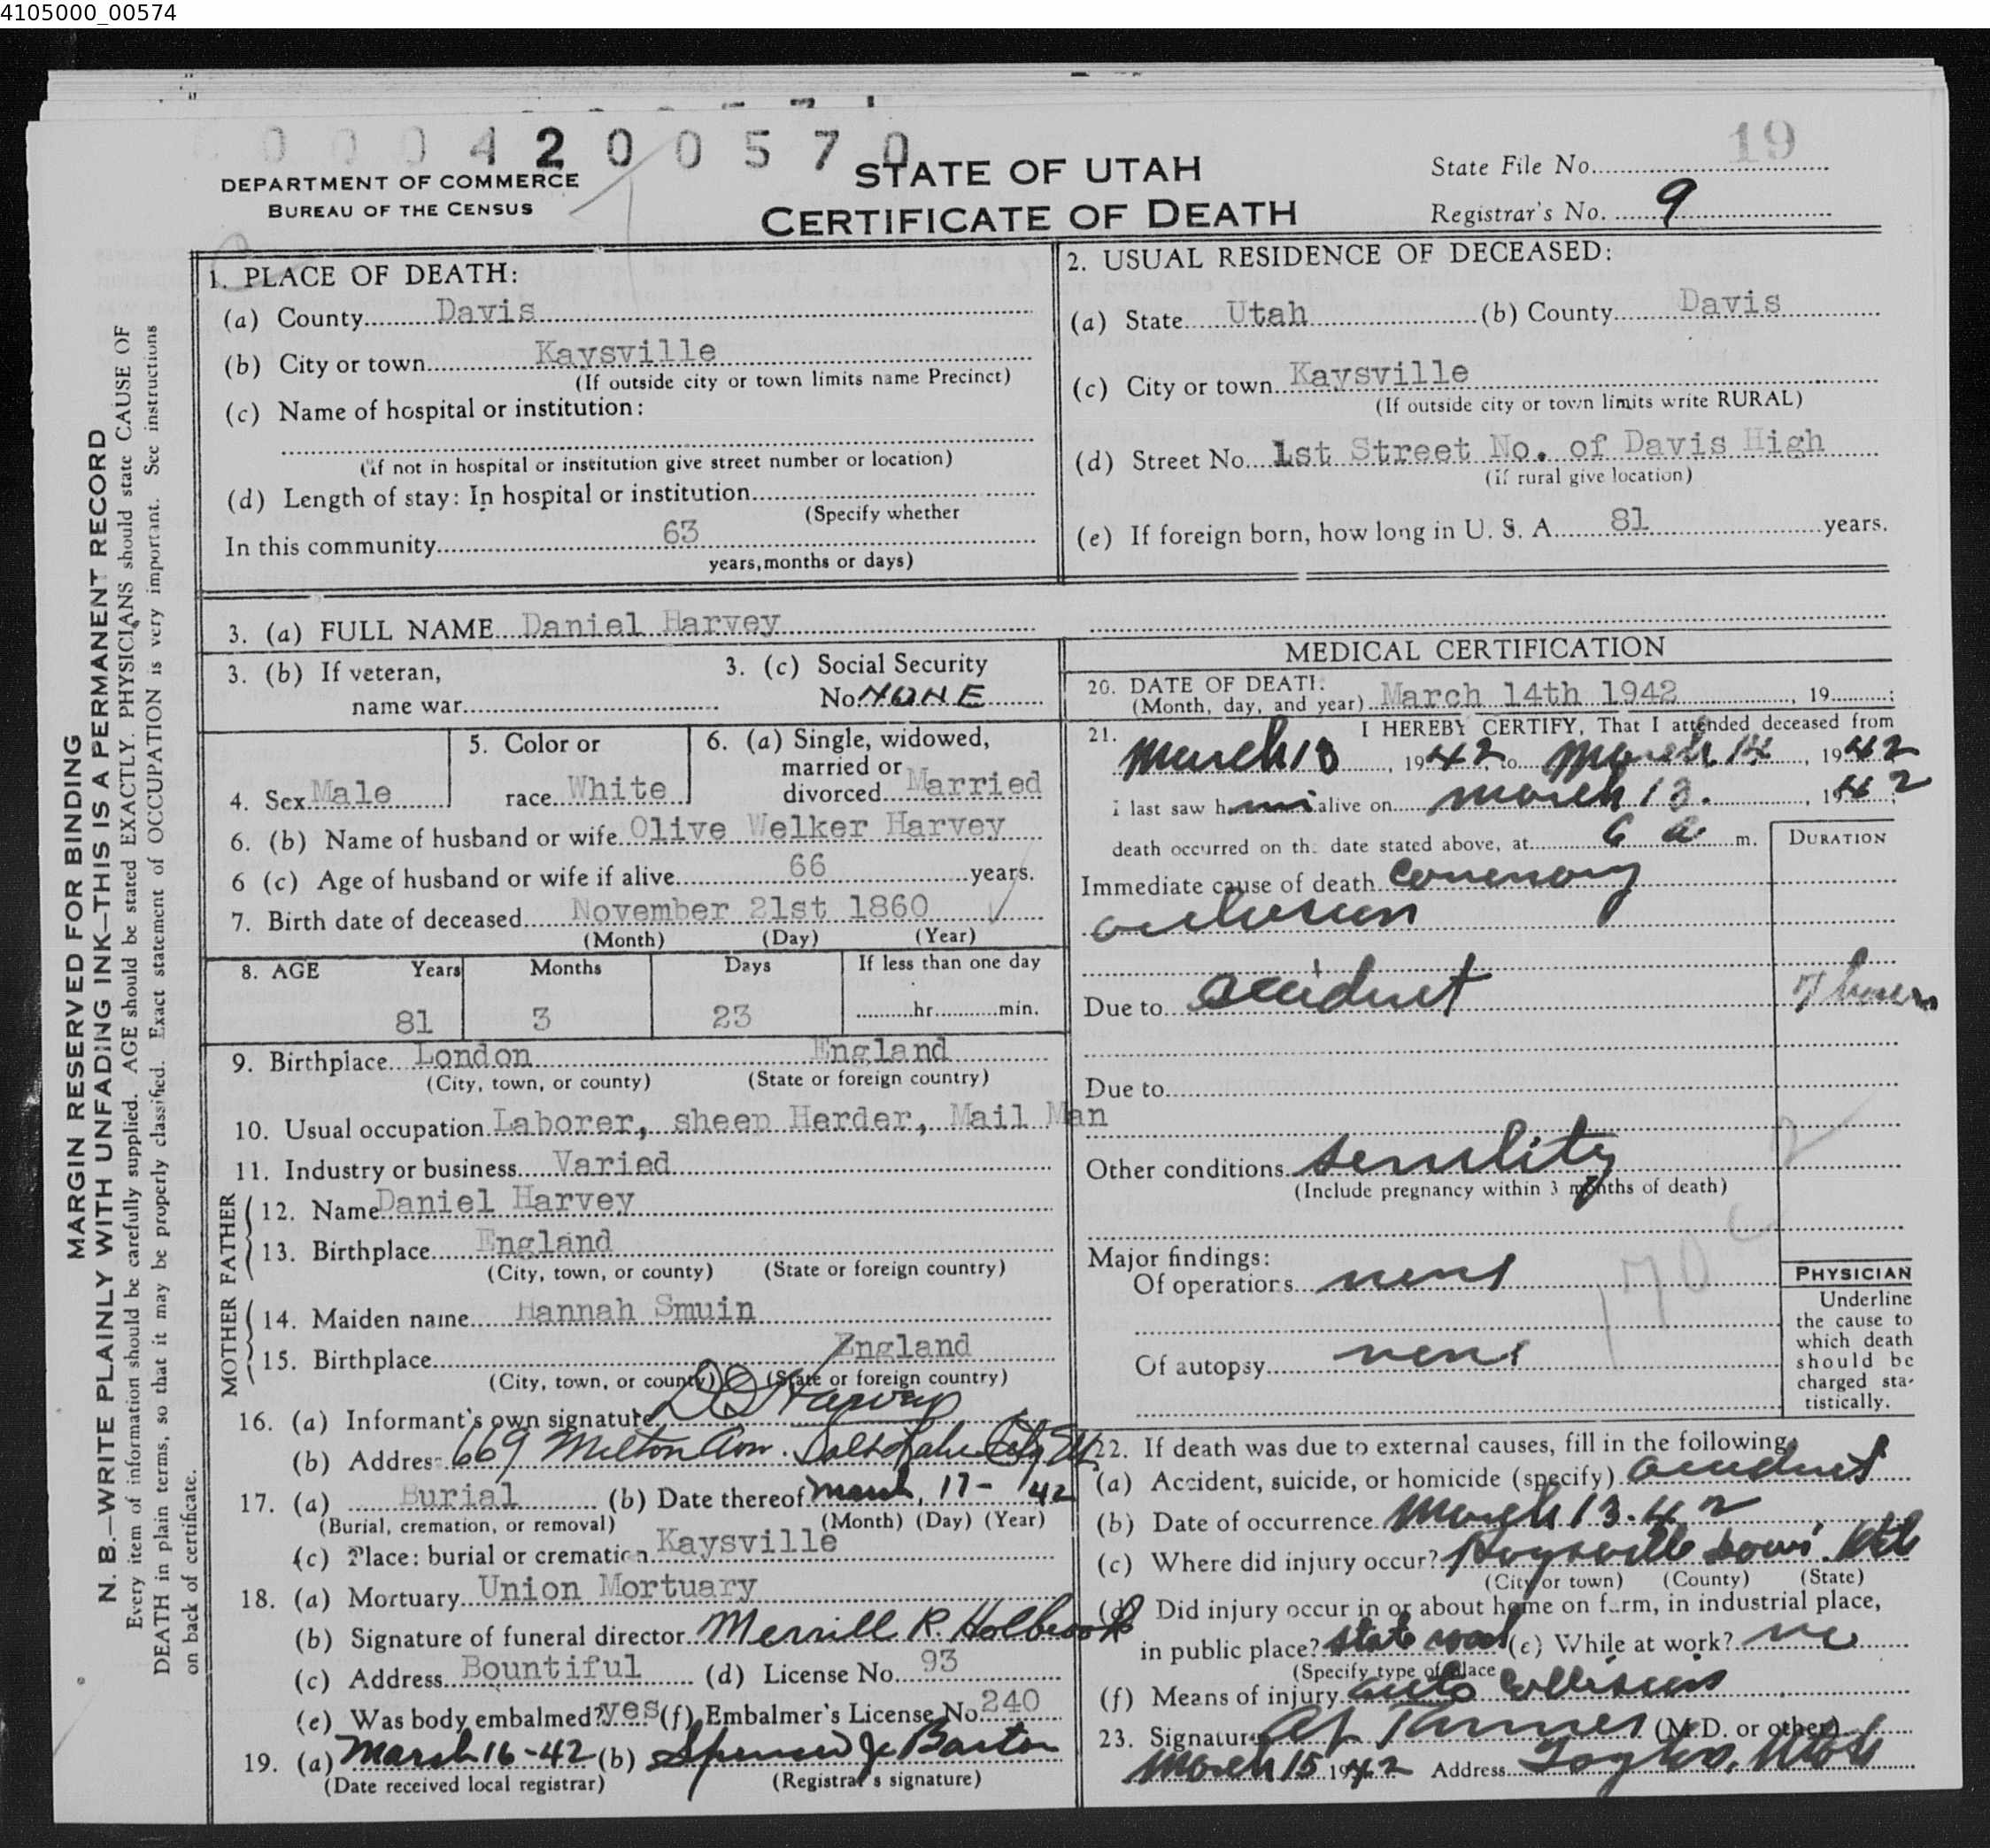 4105000_00574
0 0 0 4 2 0 0 5 7 0
19
DEPARTMENT OF COMMERCE
BUREAU OF THE CENSUS
STATE OF UTAH
CERTIFICATE OF DEATH
State File No.
Registrar's No. 9
MARGIN RESERVED FOR BINDING
N. B.—WRITE PLAINLY WITH UNFADING INK—THIS IS A PERMANENT RECORD
Every item of information should be carefully supplied. AGE should be stated EXACTLY. PHYSICIANS should state CAUSE OF
DEATH in plain terms, so that it may be properly classified. Exact statement of OCCUPATION is very important. See instructions
on back of certificate.
1. PLACE OF DEATH:
(a) County Davis
(b) City or town Kaysville
(If outside city or town limits name Precinct)
(c) Name of hospital or institution:
(if not in hospital or institution give street number or location)
(d) Length of stay: In hospital or institution
(Specify whether
In this community 63
years, months or days)
2. USUAL RESIDENCE OF DECEASED:
(a) State Utah (b) County Davis
(c) City or town Kaysville
(If outside city or town limits write RURAL)
(d) Street No. 1st Street No. of Davis High
(if rural give location)
(e) If foreign born, how long in U. S. A. 81 years.
3. (a) FULL NAME Daniel Harvey
3. (b) If veteran,
name war
3. (c) Social Security
No. NONE
4. Sex Male
5. Color or
race White
6. (a) Single, widowed,
married or
divorced Married
6. (b) Name of husband or wife Olive Welker Harvey
6 (c) Age of husband or wife if alive 66 years.
7. Birth date of deceased November 21st 1860
(Month) (Day) (Year)
8. AGE Years Months Days If less than one day
81 3 23 hr. min.
9. Birthplace London England
(City, town, or county) (State or foreign country)
10. Usual occupation Laborer, sheep Herder, Mail Man
11. Industry or business Varied
FATHER
12. Name Daniel Harvey
13. Birthplace England
(City, town, or county) (State or foreign country)
MOTHER
14. Maiden name Hannah Smuin
15. Birthplace England
(City, town, or county) (State or foreign country)
16. (a) Informant's own signature D D Harvey
(b) Address 669 Milton Ave. Salt Lake City Ut
17. (a) Burial (b) Date thereof March, 17- '42
(Burial, cremation, or removal) (Month) (Day) (Year)
(c) Place: burial or cremation Kaysville
18. (a) Mortuary Union Mortuary
(b) Signature of funeral director Merrill R. Holbrook
(c) Address Bountiful (d) License No. 93
(e) Was body embalmed? yes (f) Embalmer's License No. 240
19. (a) March 16-42 (b) Spencer J Barton
(Date received local registrar) (Registrar's signature)
MEDICAL CERTIFICATION
20. DATE OF DEATH:
(Month, day, and year) March 14th 1942, 19 ;
21. I HEREBY CERTIFY, That I attended deceased from
March 13, 1942, to March 14, 1942
i last saw him alive on March 13., 1942;
death occurred on the date stated above, at 6 a m.
DURATION
Immediate cause of death Coronary
occlusion
Due to accident 7 hours
Due to
Other conditions senility
(Include pregnancy within 3 months of death)
2
Major findings:
Of operations none
170 c
Of autopsy none
PHYSICIAN
Underline
the cause to
which death
should be
charged sta-
tistically.
22. If death was due to external causes, fill in the following:
(a) Accident, suicide, or homicide (specify) accident
(b) Date of occurrence March 13.42
(c) Where did injury occur? Kaysville Davis Ut
(City or town) (County) (State)
(d) Did injury occur in or about home on farm, in industrial place,
in public place? state road (e) While at work? no
(Specify type of place
(f) Means of injury auto collision
23. Signature Tanner (M.D. or other)
March 15 1942 Address Layton, Utah